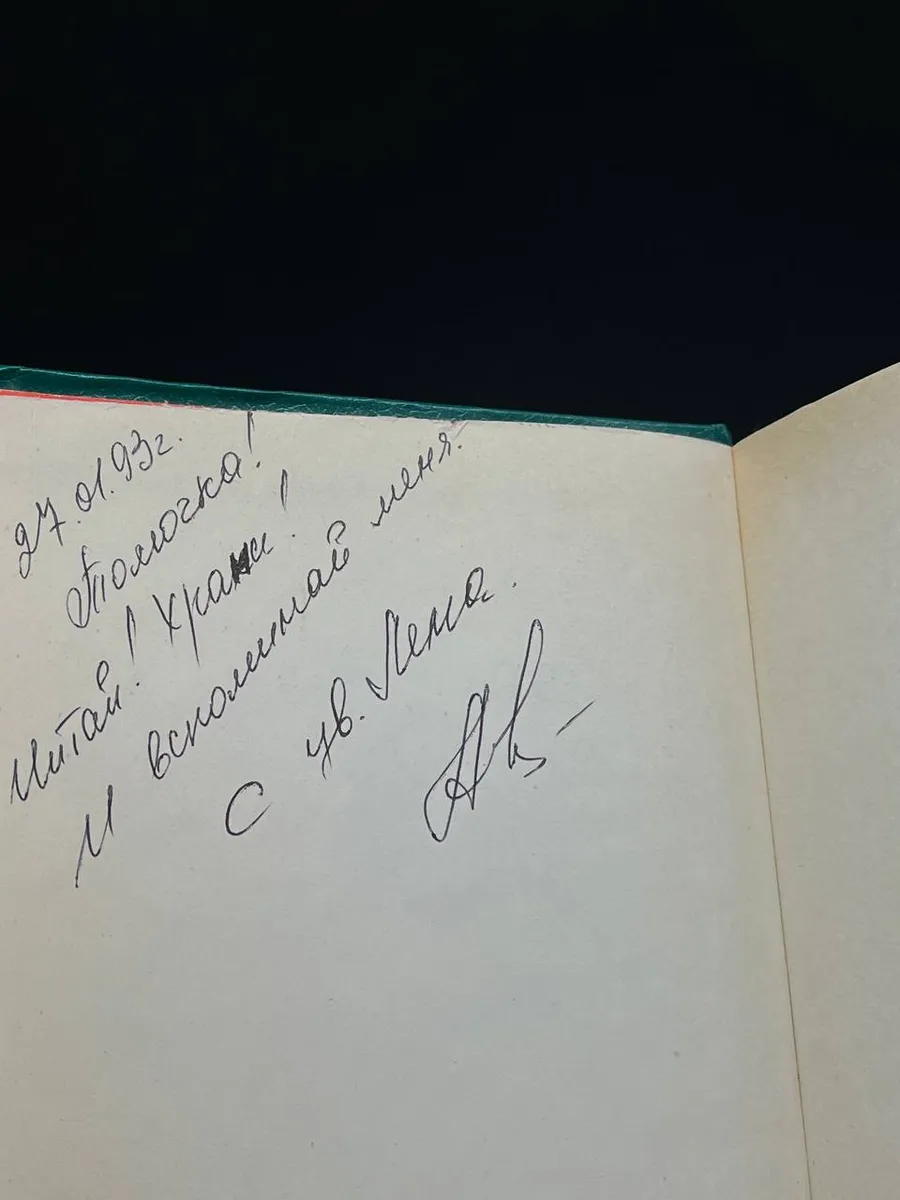 27.01.93г.
Томочка!
Читай! Храни!
И вспоминай меня.
С ув. Лена.